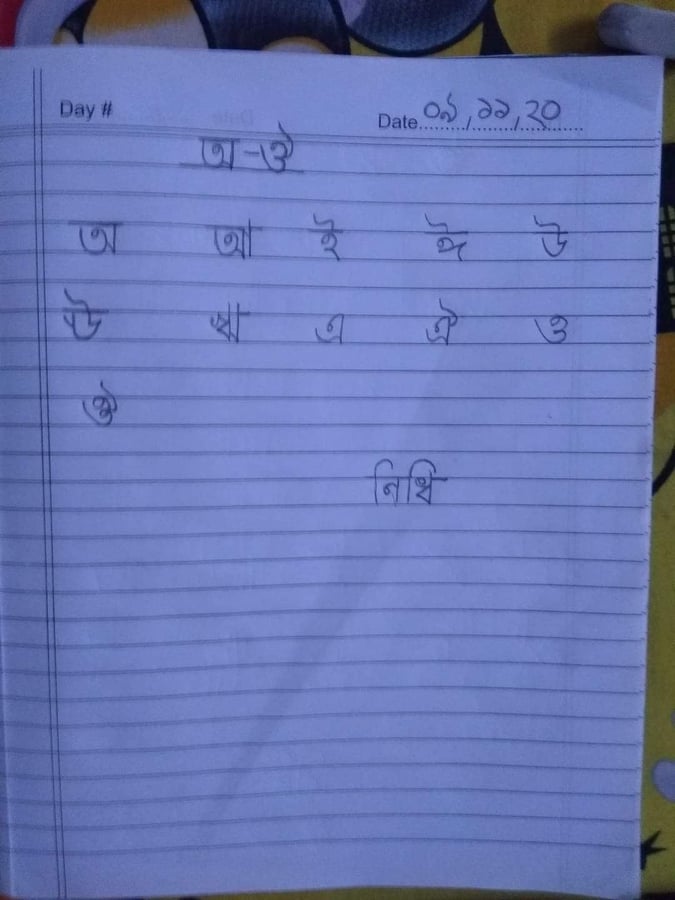 Day #
Date ০৯,১১,২০
অ-ঔ
অ আ ই ঈ উ
ঊ ঋ এ ঐ ও
ঔ
নিধি